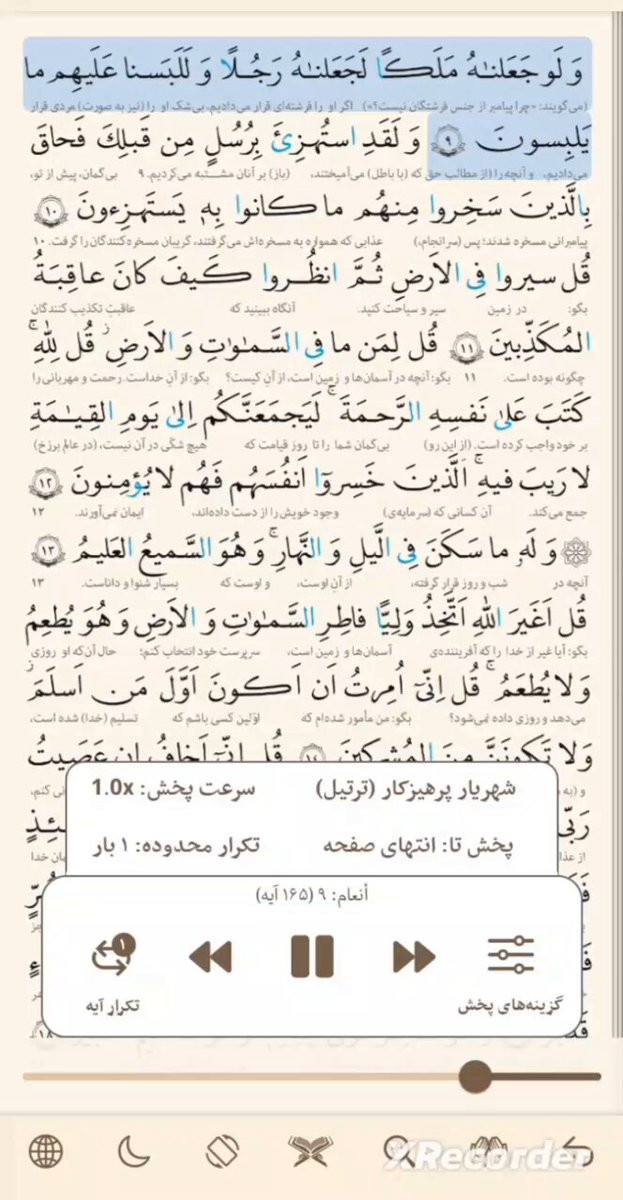 وَ لَو جَعَلنـٰهُ مَلَكًا لَجَعَلنـٰهُ رَجُلًا وَ لَلَبَسنا عَلَيهِم ما
(می‌گویند: «چرا پیامبر از جنس فرشتگان نیست؟») اگر او را فرشته‌ای قرار می‌دادیم، بی‌شک او را (نیز به صورت) مردی قرار
يَلبِسونَ ٩ وَ لَقَدِ استُهزِئَ بِرُسُلٍ مِن قَبلِكَ فَحاقَ
می‌دادیم، و آنچه را (از مطالب حق که (با باطل) می‌آمیختند، (باز) بر آنان مشتبه می‌کردیم. ۹ بی‌گمان، پیش از تو،
بِالَّذينَ سَخِروا مِنهُم ما كانوا بِهٖ يَستَهزِءونَ ١٠
پیامبرانی مسخره شدند؛ پس (سرانجام،) عذابی که همواره به مسخره‌اش می‌گرفتند، گریبان مسخره‌کنندگان را گرفت. ۱۰
قُل سيروا فِى الاَرضِ ثُمَّ انظُروا كَيفَ كانَ عاقِبَةُ
بگو: در زمین سیر و سیاحت کنید. آنگاه ببینید که عاقبتِ تکذیب کنندگان
المُكَذِّبينَ ١١ قُل لِمَن ما فِى السَّمـٰوٰتِ وَ الاَرضِ ۖ قُل لِلّٰهِ ۚ
چگونه بوده است. ۱۱ بگو: آنچه در آسمان‌ها و زمین است، از آنِ کیست؟ بگو: از آنِ خداست. رحمت و مهربانی را
كَتَبَ عَلىٰ نَفسِهِ الرَّحمَةَ ۚ لَيَجمَعَنَّكُم اِلىٰ يَومِ القِيـٰمَةِ
بر خود واجب کرده است. (از این رو) بی‌گمان شما را تا روز قیامت که هیچ شکّی در آن نیست، (در عالم برزخ)
لا رَيبَ فيهِ ۚ اَلَّذينَ خَسِروٓا اَنفُسَهُم فَهُم لا يُؤمِنونَ ١٢
جمع می‌کند. آن کسانی که (سرمایه‌ی) وجود خویش را از دست داده‌اند، ایمان نمی‌آورند. ۱۲
وَ لَهٗ ما سَكَنَ فِى الَّيلِ وَ النَّهارِ ۚ وَ هُوَ السَّميعُ العَليمُ ١٣
آنچه در شب و روز قرار گرفته، از آنِ اوست، و اوست که بسیار شنوا و داناست. ۱۳
قُل اَغَيرَ اللّٰهِ اَتَّخِذُ وَلِيًّا فاطِرِ السَّمـٰوٰتِ وَ الاَرضِ وَ هُوَ يُطعِمُ
بگو: آیا غیر از خدا را که آفریننده‌ی آسمان‌ها و زمین است، سرپرست خود انتخاب کنم؛ حال آن‌که او روزی
وَ لا يُطعَمُ ۗ قُل اِنّىٓ اُمِرتُ اَن اَكونَ اَوَّلَ مَن اَسلَمَ ۖ
می‌دهد و روزی داده نمی‌شود؟ بگو: من مأمور شده‌ام که اوّلین کسی باشم که تسلیم (خدا) شده است،
وَ لا تَكونَنَّ مِنَ المُشرِكينَ ١٤ قُل اِنّىٓ اَخافُ اِن عَصَيتُ
شهریار پرهیزکار (ترتیل) سرعت پخش: 1.0x
پخش تا: انتهای صفحه تکرار محدوده: ۱ بار
أنعام: ۹ (۱۶۵ آیه)
۱
تکرار آیه گزینه‌های پخش
١٨
XRecorder